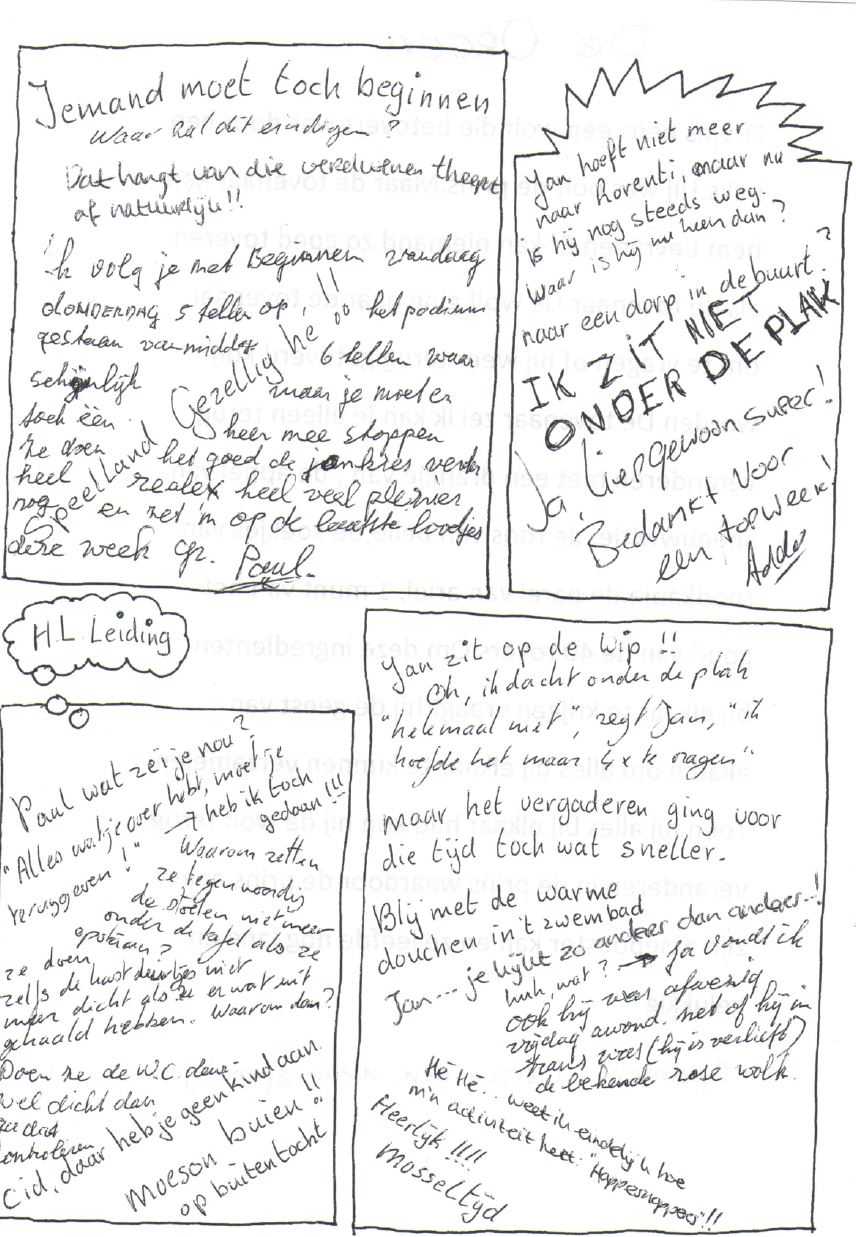 Iemand moet toch beginnen
Waar zal dit eindigen?
Dat hangt van die verdwenen theepot
af natuurlijk!!
Ik volg je met Beginnen vandaag
donderdag 5 tellen op het podium
gestaan vanmiddag 6 tellen waar
schijnlijk maar je moet er
toch één heer mee stoppen
ze doen het goed de jonkies
heel relaxt heel veel plezier
nog en zet 'm op de laatste loodjes
deze week gr. Paul.
Speelland Gezellig he!!
Jan hoeft niet meer
naar Horenti, maar nu
is hij nog steeds weg.
Waar is hij nu heen dan?
naar een dorp in de buurt?
IK ZIT NIET
ONDER DE PLAK
Ja, liep gewoon super!
Bedankt voor
een topweek!
H.L Leiding
Paul wat zei je nou?
"Alles wat je over hebt, moet je
teruggeven!" → heb ik toch
gedaan!!!
Waarom zetten
ze tegenwoordig
de stoel niet meer
onder de tafel als ze
opstaan?
ze doen
zelfs de kastdeurtjes niet
meer dicht als ze er wat uit
gehaald hebben. Waarom dan?
Doen ze de W.C. deur
wel dicht dan
ga dat
controleren
Cid, daar heb je geen kind aan.
Moeson buien!!
op buitentocht
Jan zit op de wip!!
Oh, ik dacht onder de plak
"helemaal niet", zegt Jan, "ik
hoefde het maar 4x te vragen"
maar het vergaderen ging voor
die tijd toch wat sneller.
Blij met de warme
douchen in 't zwembad
Jan --- je lijkt zo anders dan anders..!
huh, wat? → Ja vondt ik
ook hij was afwezig
vrijdag avond. net of hij in
trans was (hij is verliefd)
de bekende rose wolk.
Hè Hè.. weet ik eindelijk hoe
m'n activiteit heet: "Happersnappers"!!
Heerlijk!!!!
Mosseltijd